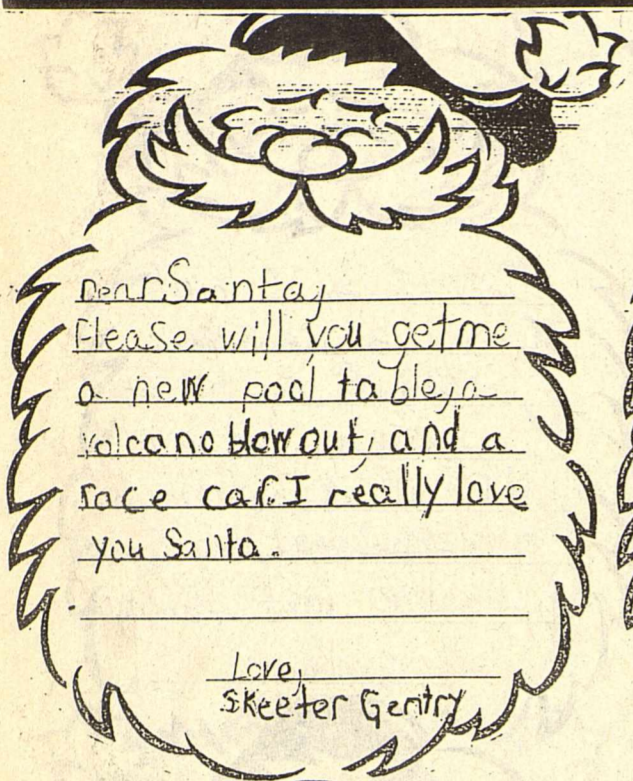 Dear Santa,
Please will you get me
a new pool table, a
volcano blow out, and a
race car. I really love
you Santa.
Love,
Skeeter Gentry